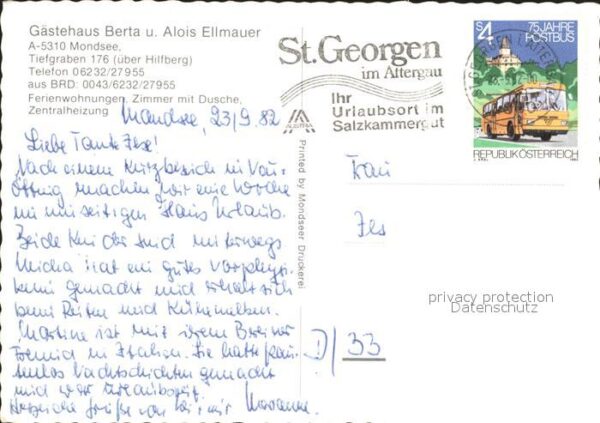 Gästehaus Berta u. Alois Ellmauer
A-5310 Mondsee,
Tiefgraben 176 (über Hilfberg)
Telefon 06232/27955
aus BRD: 0043/6232/27955
Ferienwohnungen, Zimmer mit Dusche,
Zentralheizung
Mondsee, 23/9.82
Liebe Tante Ilse!
Nach einem Kurzbesuch in
machen wir eine Woche
Haus Urlaub.
Beide Kinder sind unterwegs
Micha hat ein gutes Vorphysi-
kum gemacht und erholt sich
beim Reiten und Kühemelken.
Martine ist mit ihrem
Freund in Italien. Sie hatte
Nachtschichten gemacht
und war urlaubsreif.
Herzliche Grüße von
St. Georgen
im Attergau
Ihr
Urlaubsort im
Salzkammergut
Printed by Mondseer Druckerei
S4
75 JAHRE
POSTBUS
REPUBLIK ÖSTERREICH
Frau
D/ 33
privacy protection
Datenschutz